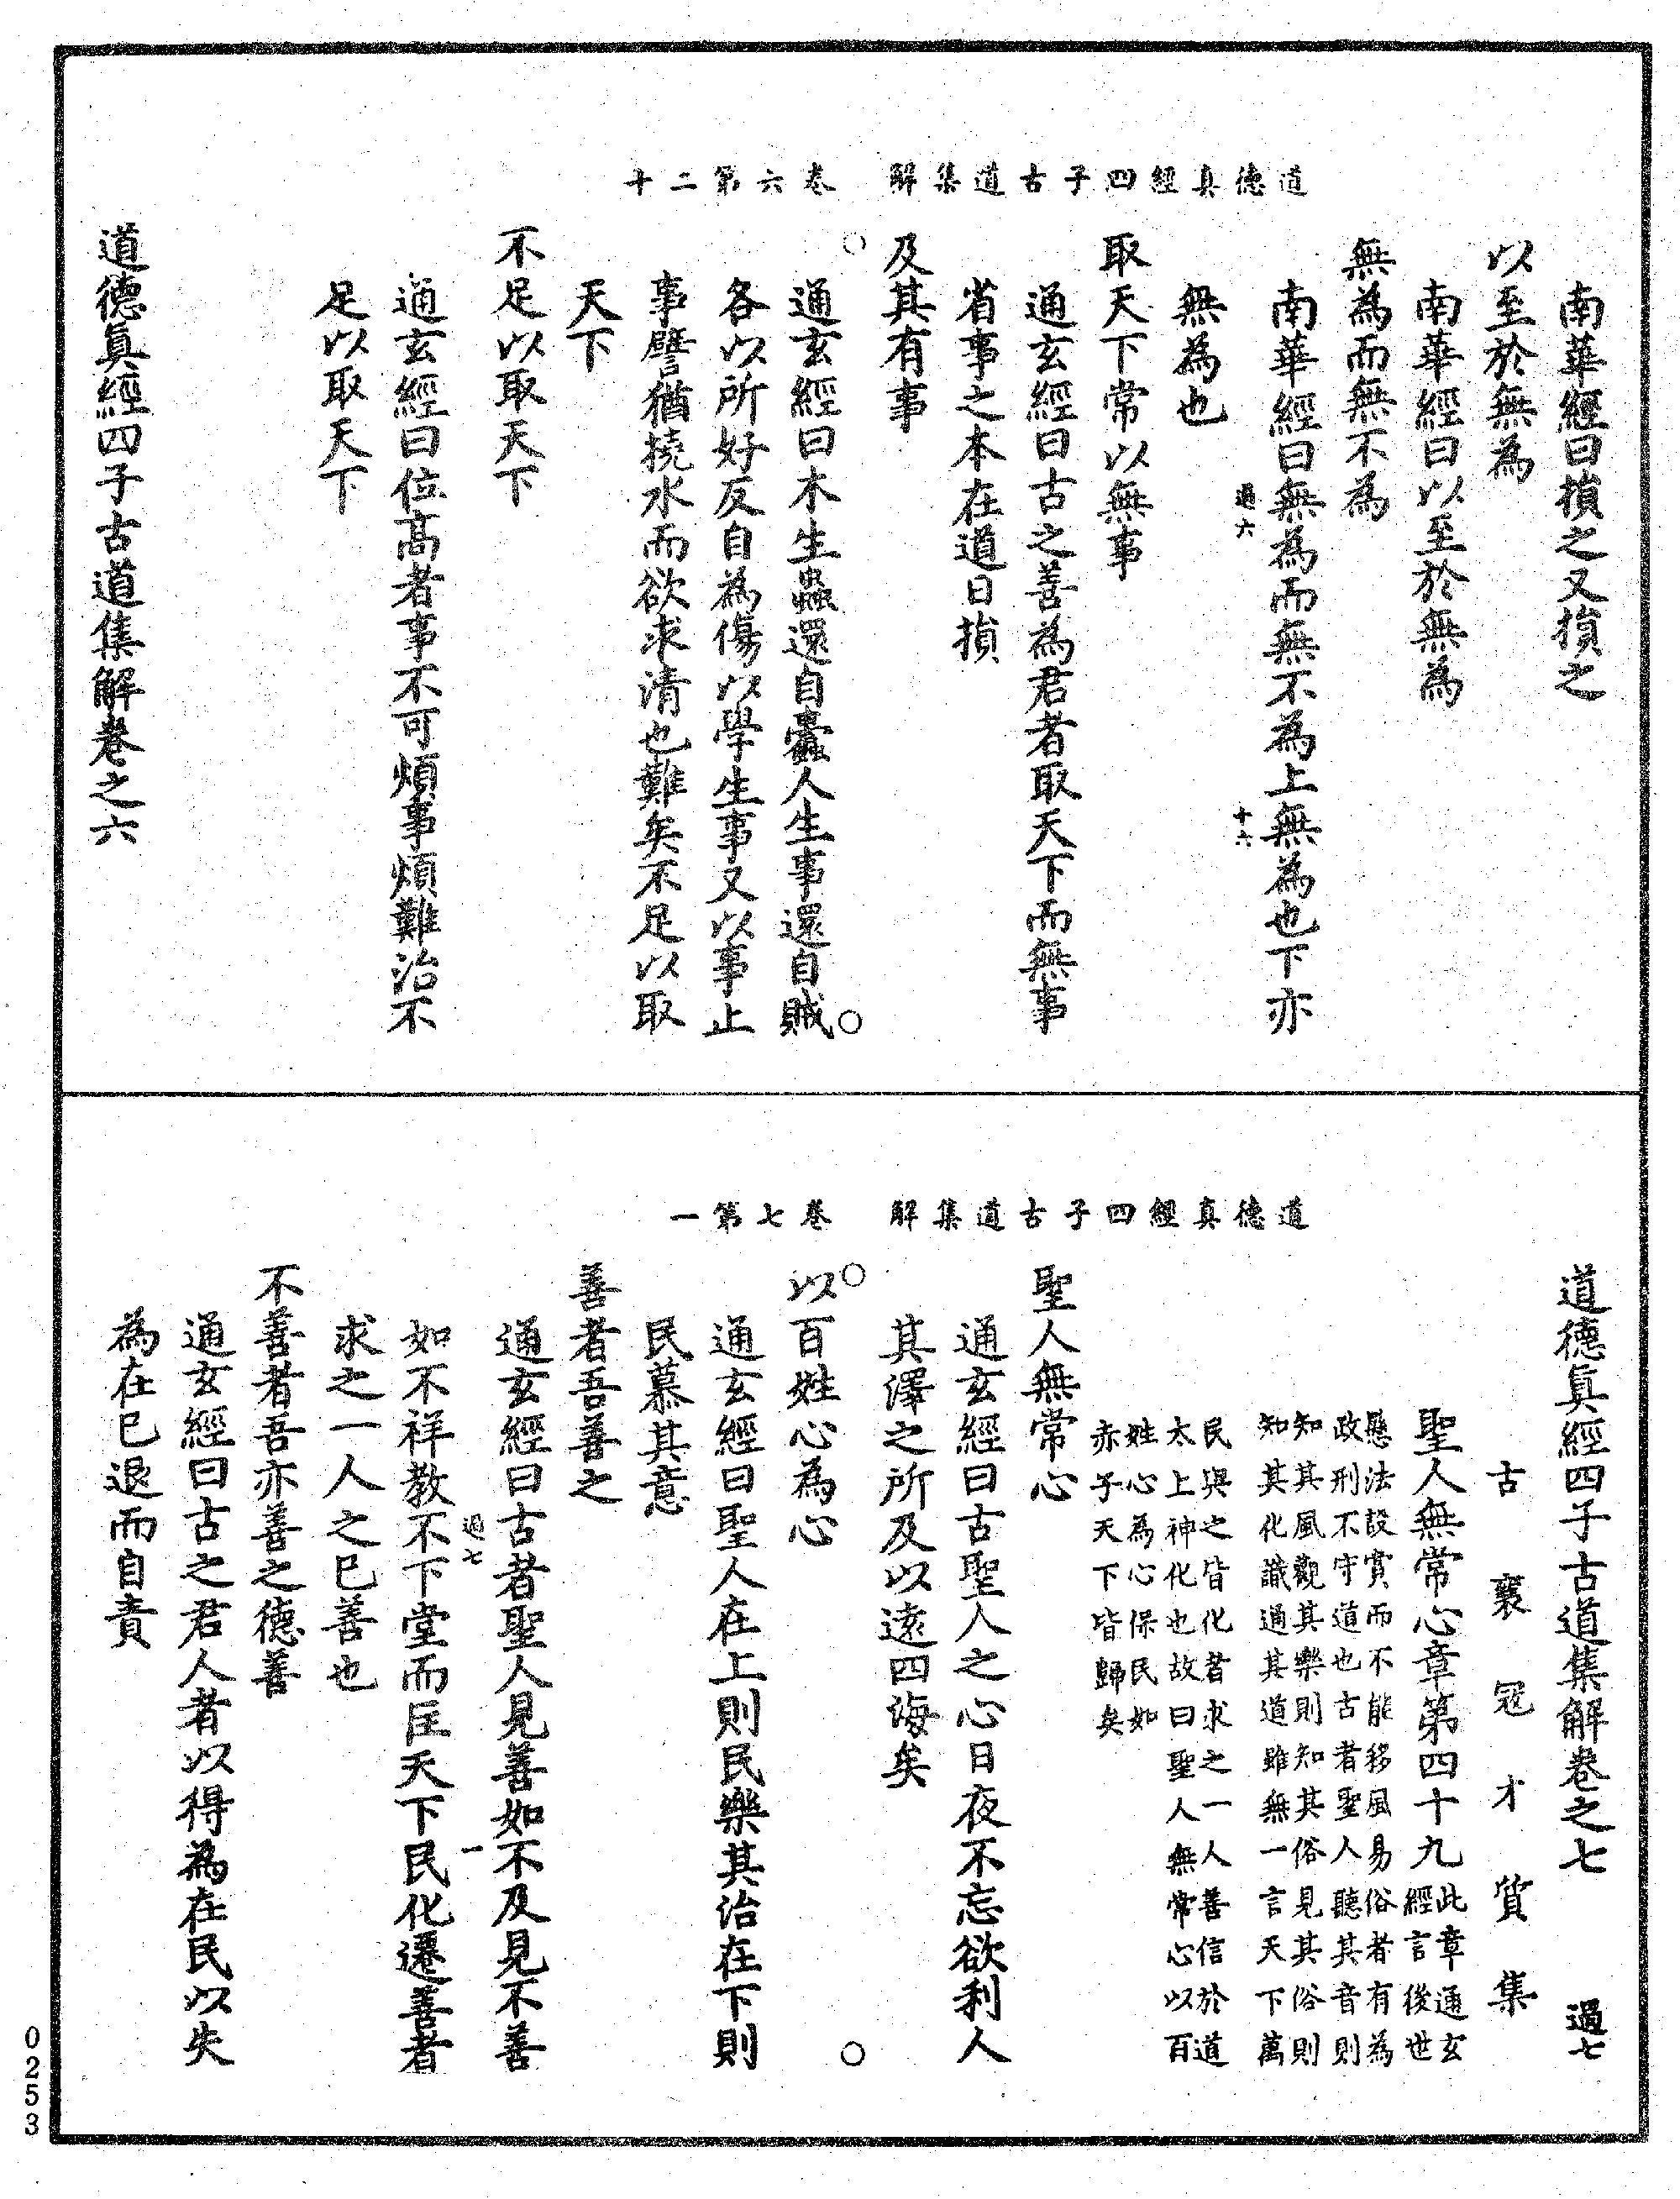 道德真經四子古道集解　卷六第二十
南華經曰損之又損之
以至於無為
南華經曰以至於無為
無為而無不為
南華經曰無為而無不為上無為也下亦
過六　十六
無為也
取天下常以無事
通玄經曰古之善為君者取天下而無事
省事之本在道日損
及其有事
通玄經曰木生蟲還自蠹人生事還自賊
各以所好反自為傷以學生事又以事止
事譬猶撓水而欲求清也難矣不足以取
天下
不足以取天下
通玄經曰位高者事不可煩事煩難治不
足以取天下
道德真經四子古道集解卷之六
道德真經四子古道集解　卷七第一
道德真經四子古道集解卷之七　過七
古襄寇才質集
聖人無常心章第四十九
此章通玄
經言後世
懸法設賞而不能移風易俗者有為
政刑不守道也古者聖人聽其音則
知其風觀其樂則知其俗見其俗則
知其化識通其道雖無一言天下萬
民與之皆化者求之一人善信於道
太上神化也故曰聖人無常心以百
姓心為心保民如
赤子天下皆歸矣
聖人無常心
通玄經曰古聖人之心日夜不忘欲利人
其澤之所及以遠四海矣
以百姓心為心
通玄經曰聖人在上則民樂其治在下則
民慕其意
善者吾善之
通玄經曰古者聖人見善如不及見不善
過七　一
如不祥教不下堂而匡天下民化遷善者
求之一人之已善也
不善者吾亦善之德善
通玄經曰古之君人者以得為在民以失
為在已退而自責
0253